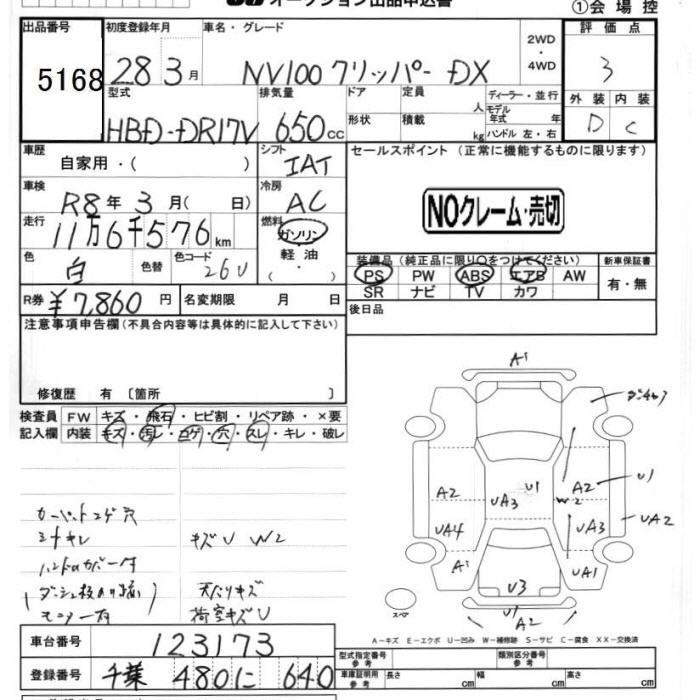 オークション出品申込書
①会場控
出品番号
5168
初度登録年月
28 3月
車名・グレード
NV100 クリッパー DX
2WD・4WD
評価点
3
外装 内装
D C
型式
HBD-DR17V
排気量
650cc
ドア 形状
定員 人
積載 kg
ディーラー・並行
モデル年式 年
ハンドル 左・右
車歴
自家用・( )
シフト
IAT
セールスポイント (正常に機能するものに限ります)
NOクレーム・売切
車検
R8年 3月( 日)
冷房
AC
走行
11万6千576km
燃料
ガソリン・軽油・( )
色
白
色替
色コード
26U
装備品 (純正品に限り○をつけてください)
PS PW ABS エアB AW
SR ナビ TV カワ
新車保証書
有・無
R券 ¥7,860円
名変期限 月 日
後日品
注意事項申告欄(不具合内容等は具体的に記入して下さい)
修復歴 有 〔箇所 〕
検査員記入欄
FW キズ・飛石・ヒビ割・リペア跡・×要
内装 キズ・汚レ・コゲ・穴・スレ・キレ・破レ
カーペットコゲ穴
シートキレ
キズU W2
天バリキズ
荷室キズU
A1
A2
UA4
A1
UA3
U1
W2
A2
UA3
UA1
U1
UA2
U3
U1
A2
スペア
A-キズ E-エクボ U-凹み W-補修跡 S-サビ C-腐食 XX-交換済
車台番号
123173
登録番号
千葉 480 に 640
型式指定番号 参考
類別区分番号 参考
車庫証明用 参考
長さ cm
幅 cm
高さ cm